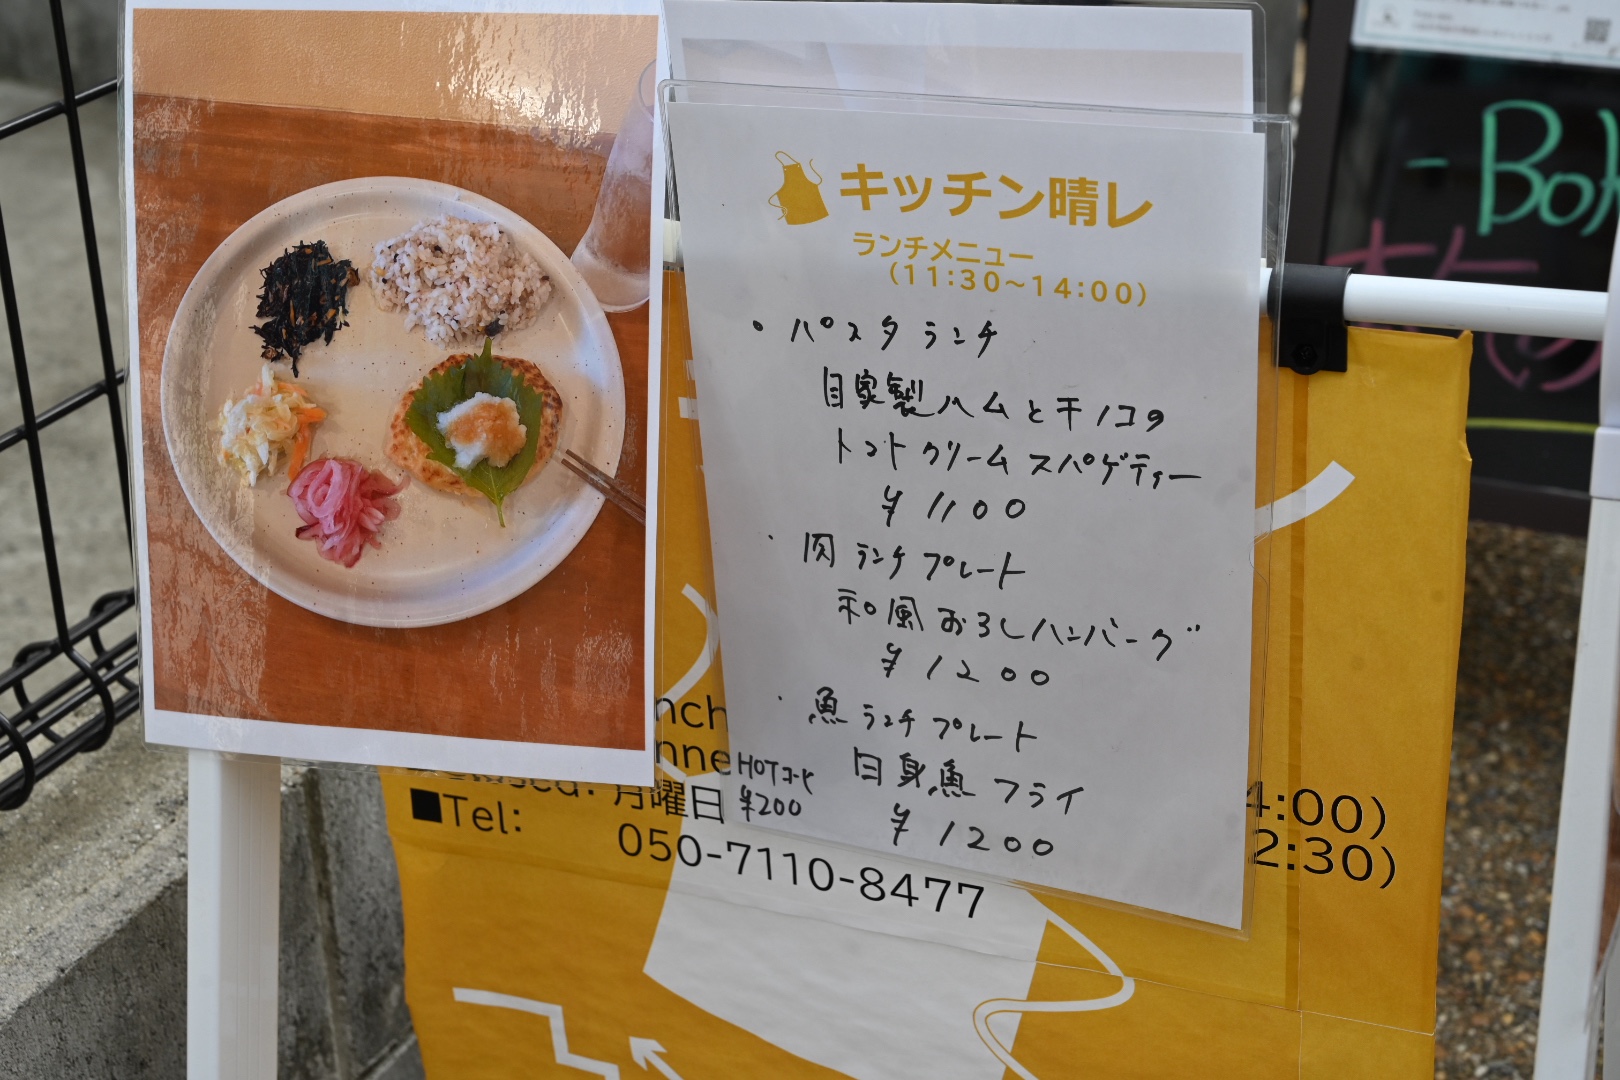 キッチン晴レ
ランチメニュー
(11:30〜14:00)
・パスタランチ
自家製ハムとキノコの
トマトクリームスパゲティー
¥1100
・肉ランチプレート
和風おろしハンバーグ
¥1200
・魚ランチプレート
白身魚フライ
¥1200
HOTコーヒ
¥200
nch
nne
4:00)
月曜日
2:30)
■Tel:
050-7110-8477